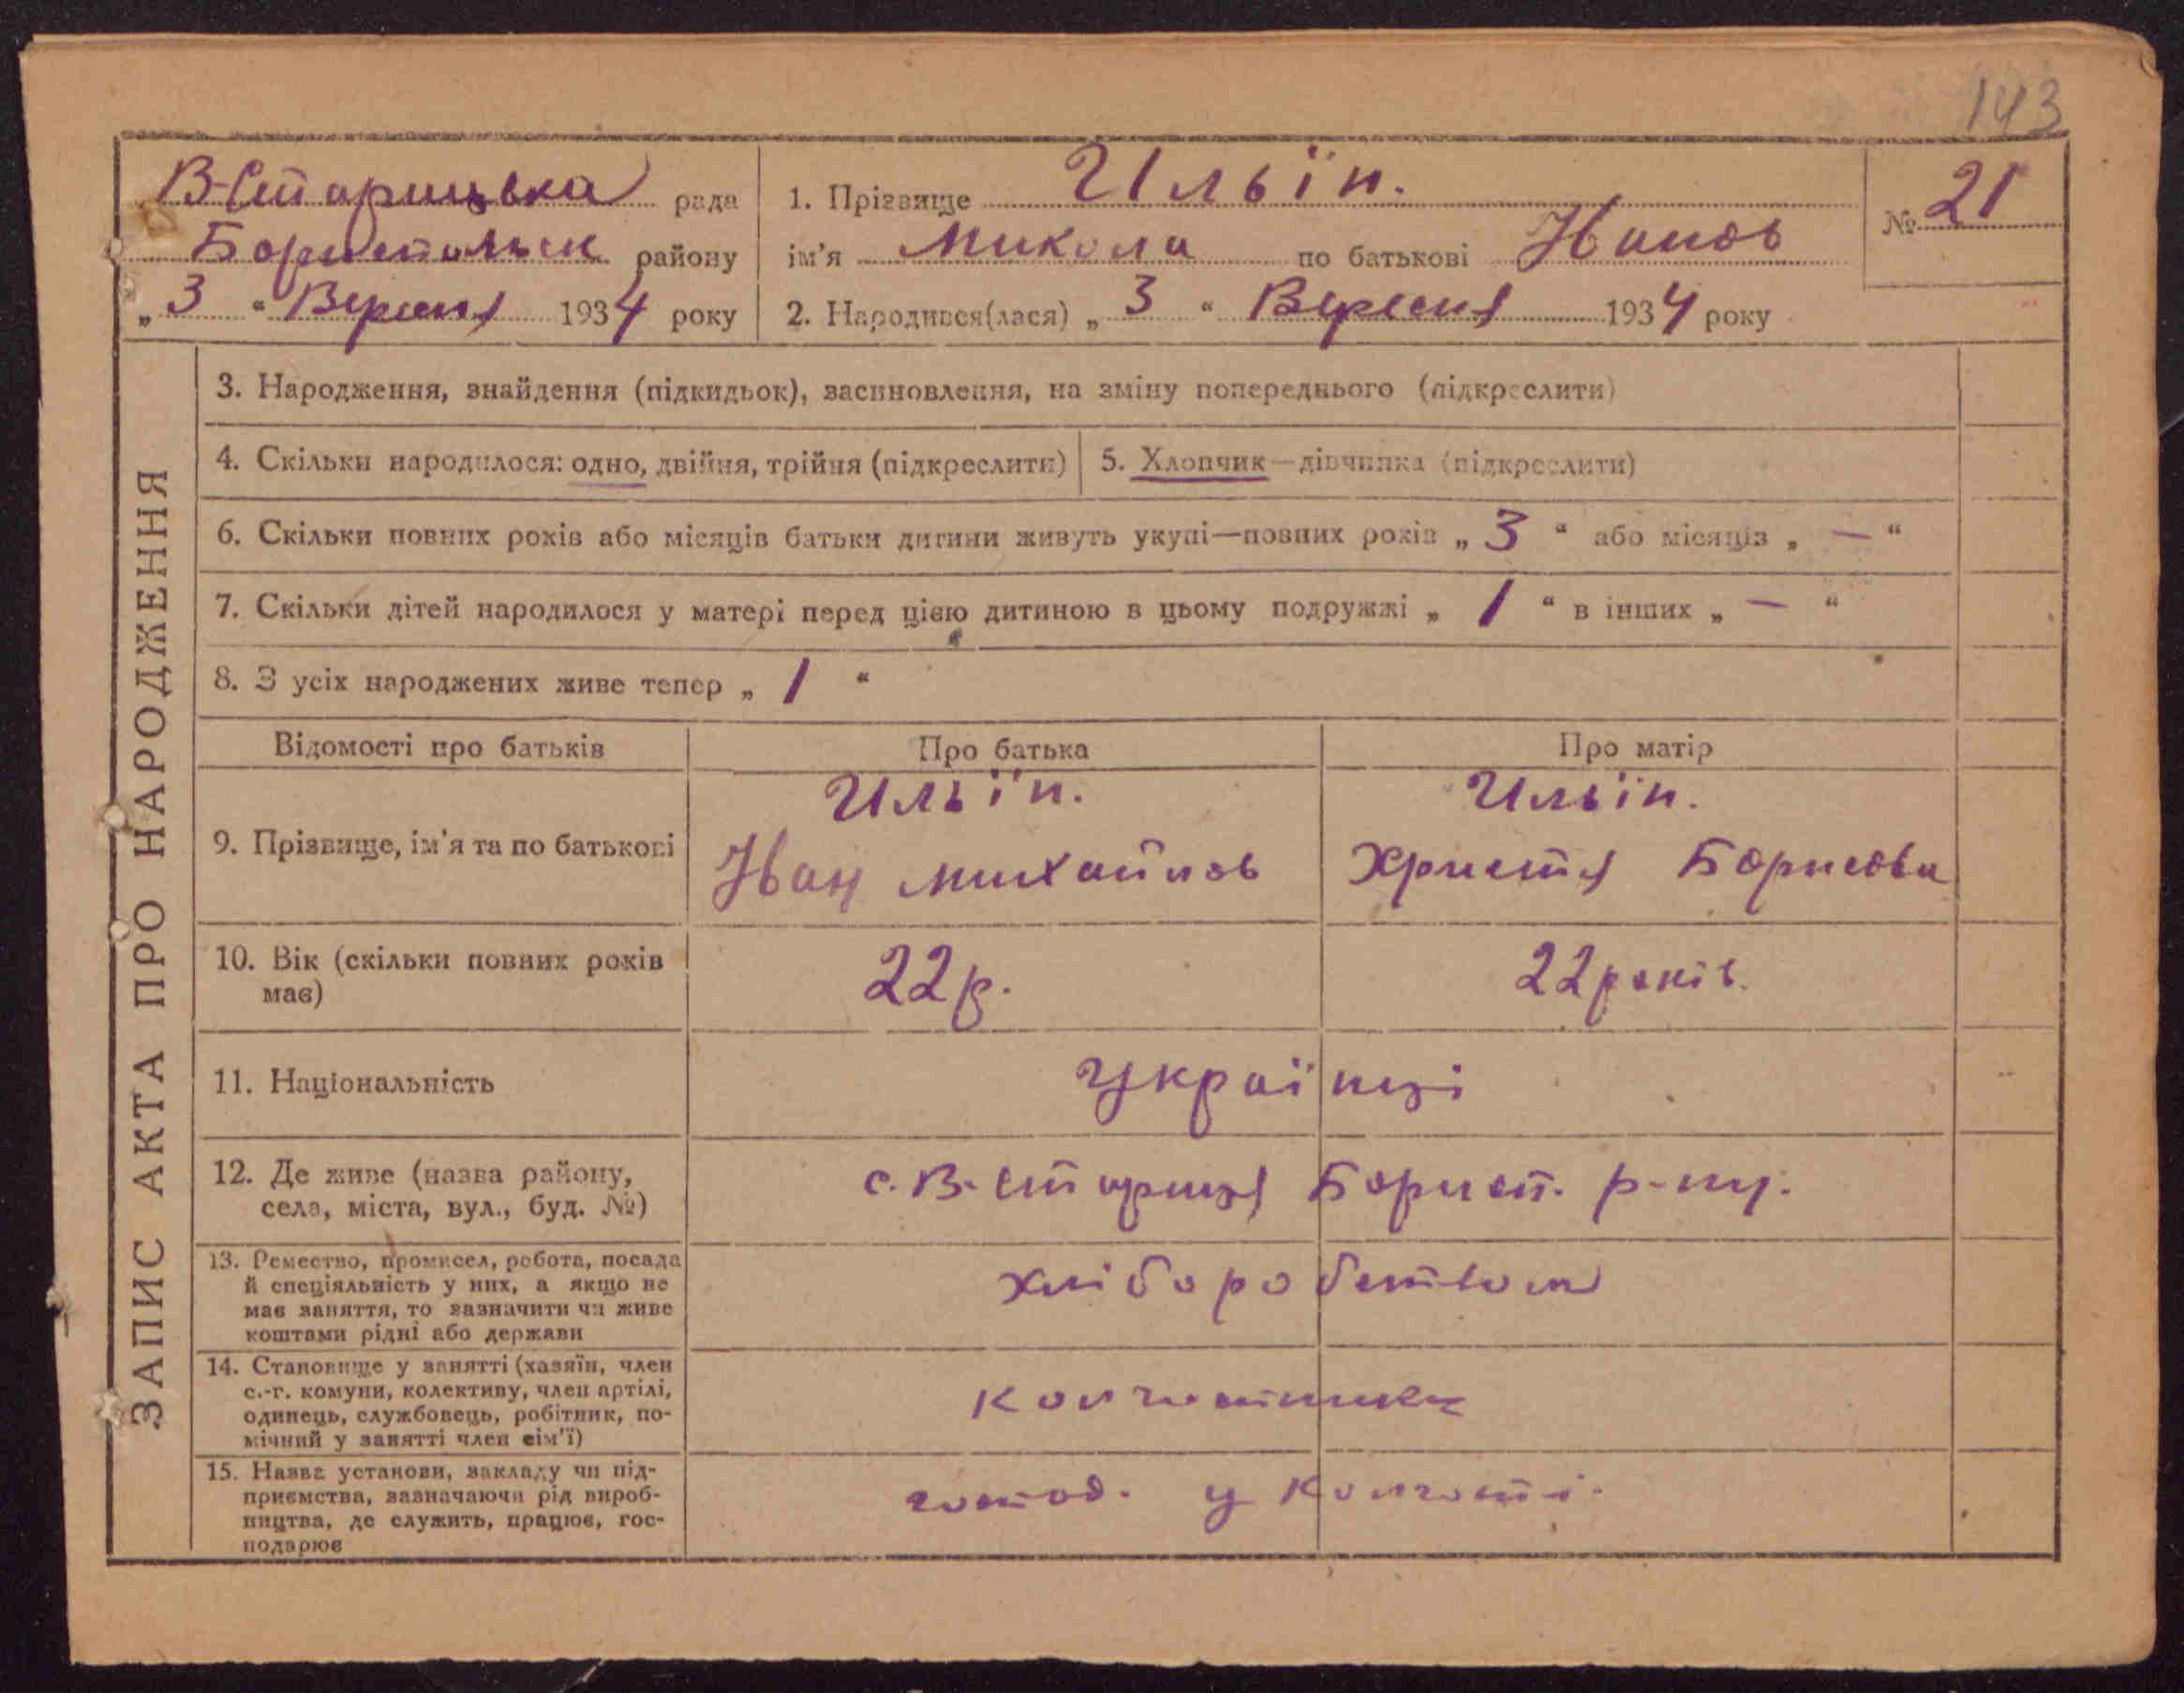 143
В-Старицька рада
Бориспольск району
„ 3 “ Вересня 1934 року
1. Прізвище Ильїн.
ім'я Микола по батькові Іванов
2. Народився(лася) „ 3 “ Вересня 1934 року
№ 21
ЗАПИС АКТА ПРО НАРОДЖЕННЯ
3. Народження, знайдення (підкидьок), засиновлення, на зміну попереднього (підкреслити)
4. Скільки народилося: одно, двійня, трійня (підкреслити)
5. Хлопчик—дівчинка (підкреслити)
6. Скільки повних років або місяців батьки дитини живуть укупі—повних років „ 3 “ або місяців „ — “
7. Скільки дітей народилося у матері перед цією дитиною в цьому подружжі „ 1 “ в інших „ — “
8. З усіх народжених живе тепер „ 1 “
Відомості про батьків
Про батька
Про матір
9. Прізвище, ім'я та по батькові
Ильїн.
Іван Михайлов
Ильїн.
Христя Борисовн
10. Вік (скільки повних років
має)
22 р.
22 років.
11. Національність
Українці
12. Де живе (назва району,
села, міста, вул., буд. №)
с. В-Стариця Борисп. р-ну.
13. Ремество, промисел, робота, посада
й спеціяльність у них, а якщо не
має заняття, то зазначити чи живе
коштами рідні або держави
хліборобством
14. Становище у занятті (хазяїн, член
с.-г. комуни, колективу, член артілі,
одинець, службовець, робітник, по-
мічний у занятті член сім'ї)
колгоспники
15. Назва установи, закладу чи під-
приємства, зазначаючи рід вироб-
ництва, де служить, працює, гос-
подарює
господ. у колгоспі.